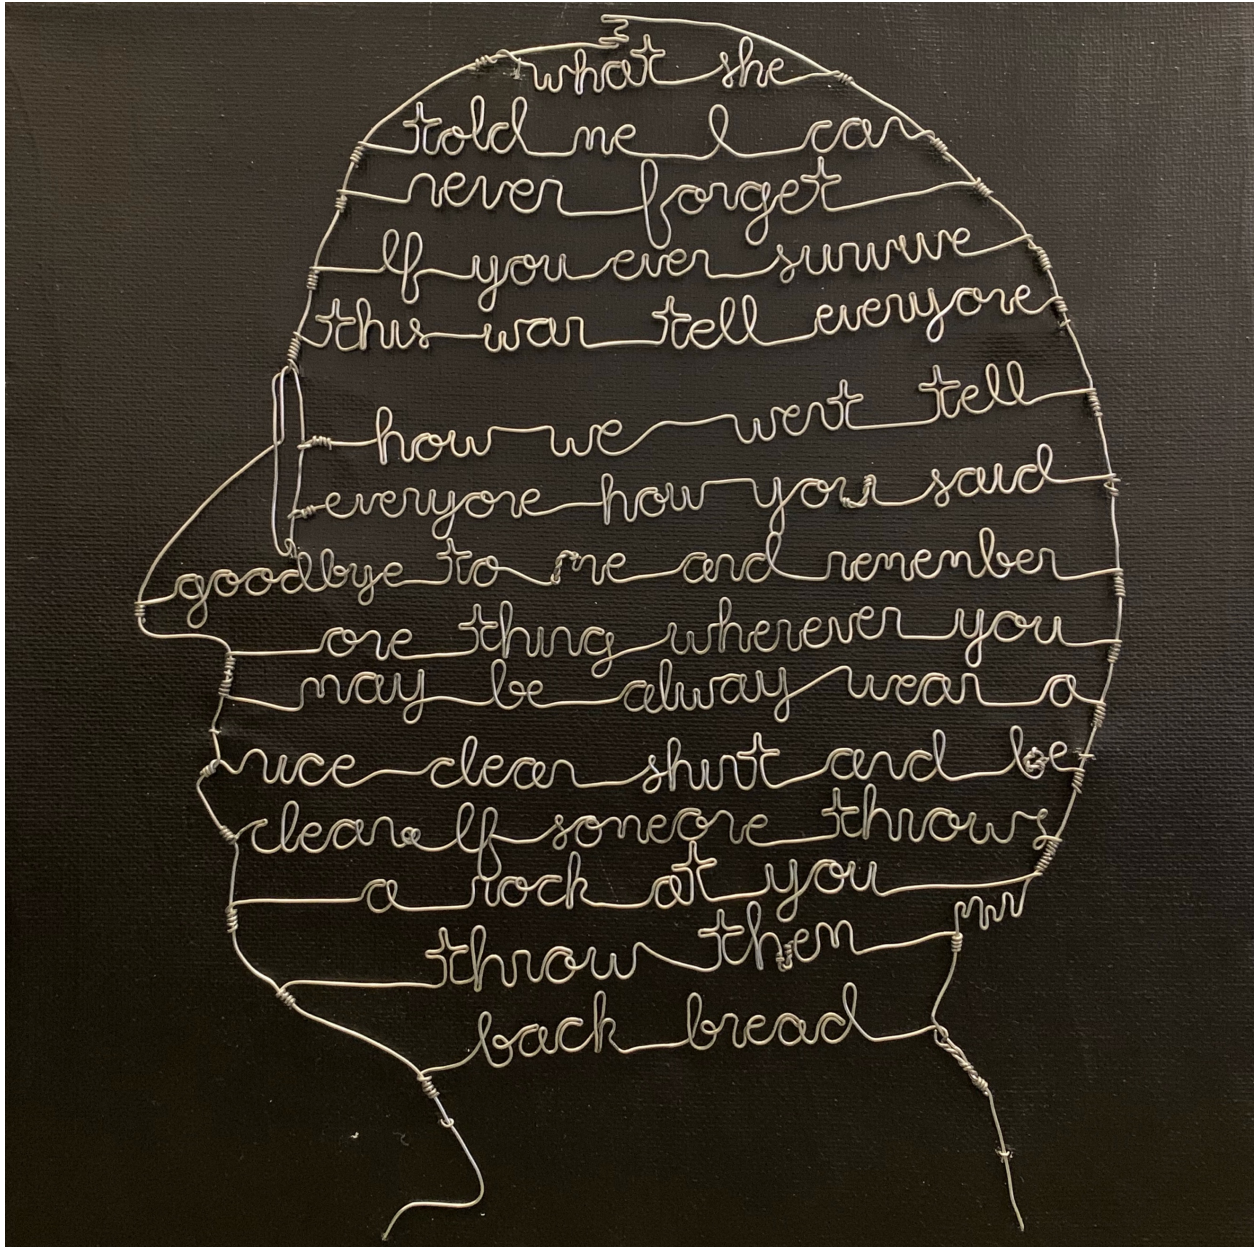 what she
told me I can
never forget
If you ever survive
this war tell everyone
how we went tell
everyone how you said
goodbye to me and remember
one thing wherever you
may be alway wear a
nice clean shirt and be
clean If someone throws
a rock at you
throw them
back bread